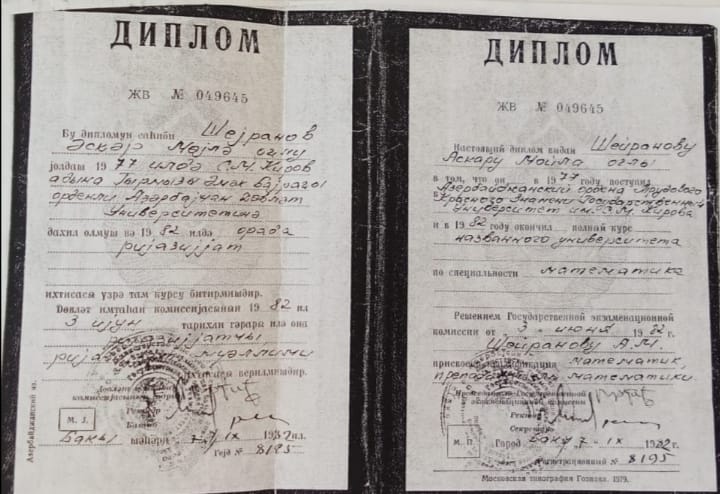 ДИПЛОМ
ЖВ № 049645
Бу дипломун саһиби Шејранов
Әскәр Мојла оғлу
јолдаш 1977 илдә С.М.Киров
адына Гырмызы Әмәк Бајрағы
орденли Азәрбајҹан Дөвләт
Университетинә
дахил олмуш вә 1982 илдә орада
ријазијјат
ихтисасы үзрә там курсу битирмишдир.
Дөвләт имтаһан комиссијасынын 1982 ил
3 ијун тарихли гәрары илә она
ријазијјатчы,
мүәллими
ихтисасы верилмишдир.
Ректор
М. Ј.
Бакы шәһәри 7 IX 1982 ил.
Гејд № 8195
Азербайджанский яз.
ДИПЛОМ
ЖВ № 049645
Настоящий диплом выдан Шейранову
Аскару Мойла оглы
в том, что он в 1977 году поступил
в Азербайджанский ордена Трудового
Красного Знамени Государственный
университет им. С.М. Кирова
и в 1982 году окончил полный курс
названного университета
по специальности математика
Решением Государственной экзаменационной
комиссии от 3 июня 1982 г.
Шейранову А.М.
присвоена квалификация математик,
преподаватель математики.
Председатель Государственной
экзаменационной комиссии
Ректор
Секретарь
М. П.
Город Баку 7 IX 1982 г.
Регистрационный № 8195
Московская типография Гознака. 1979.